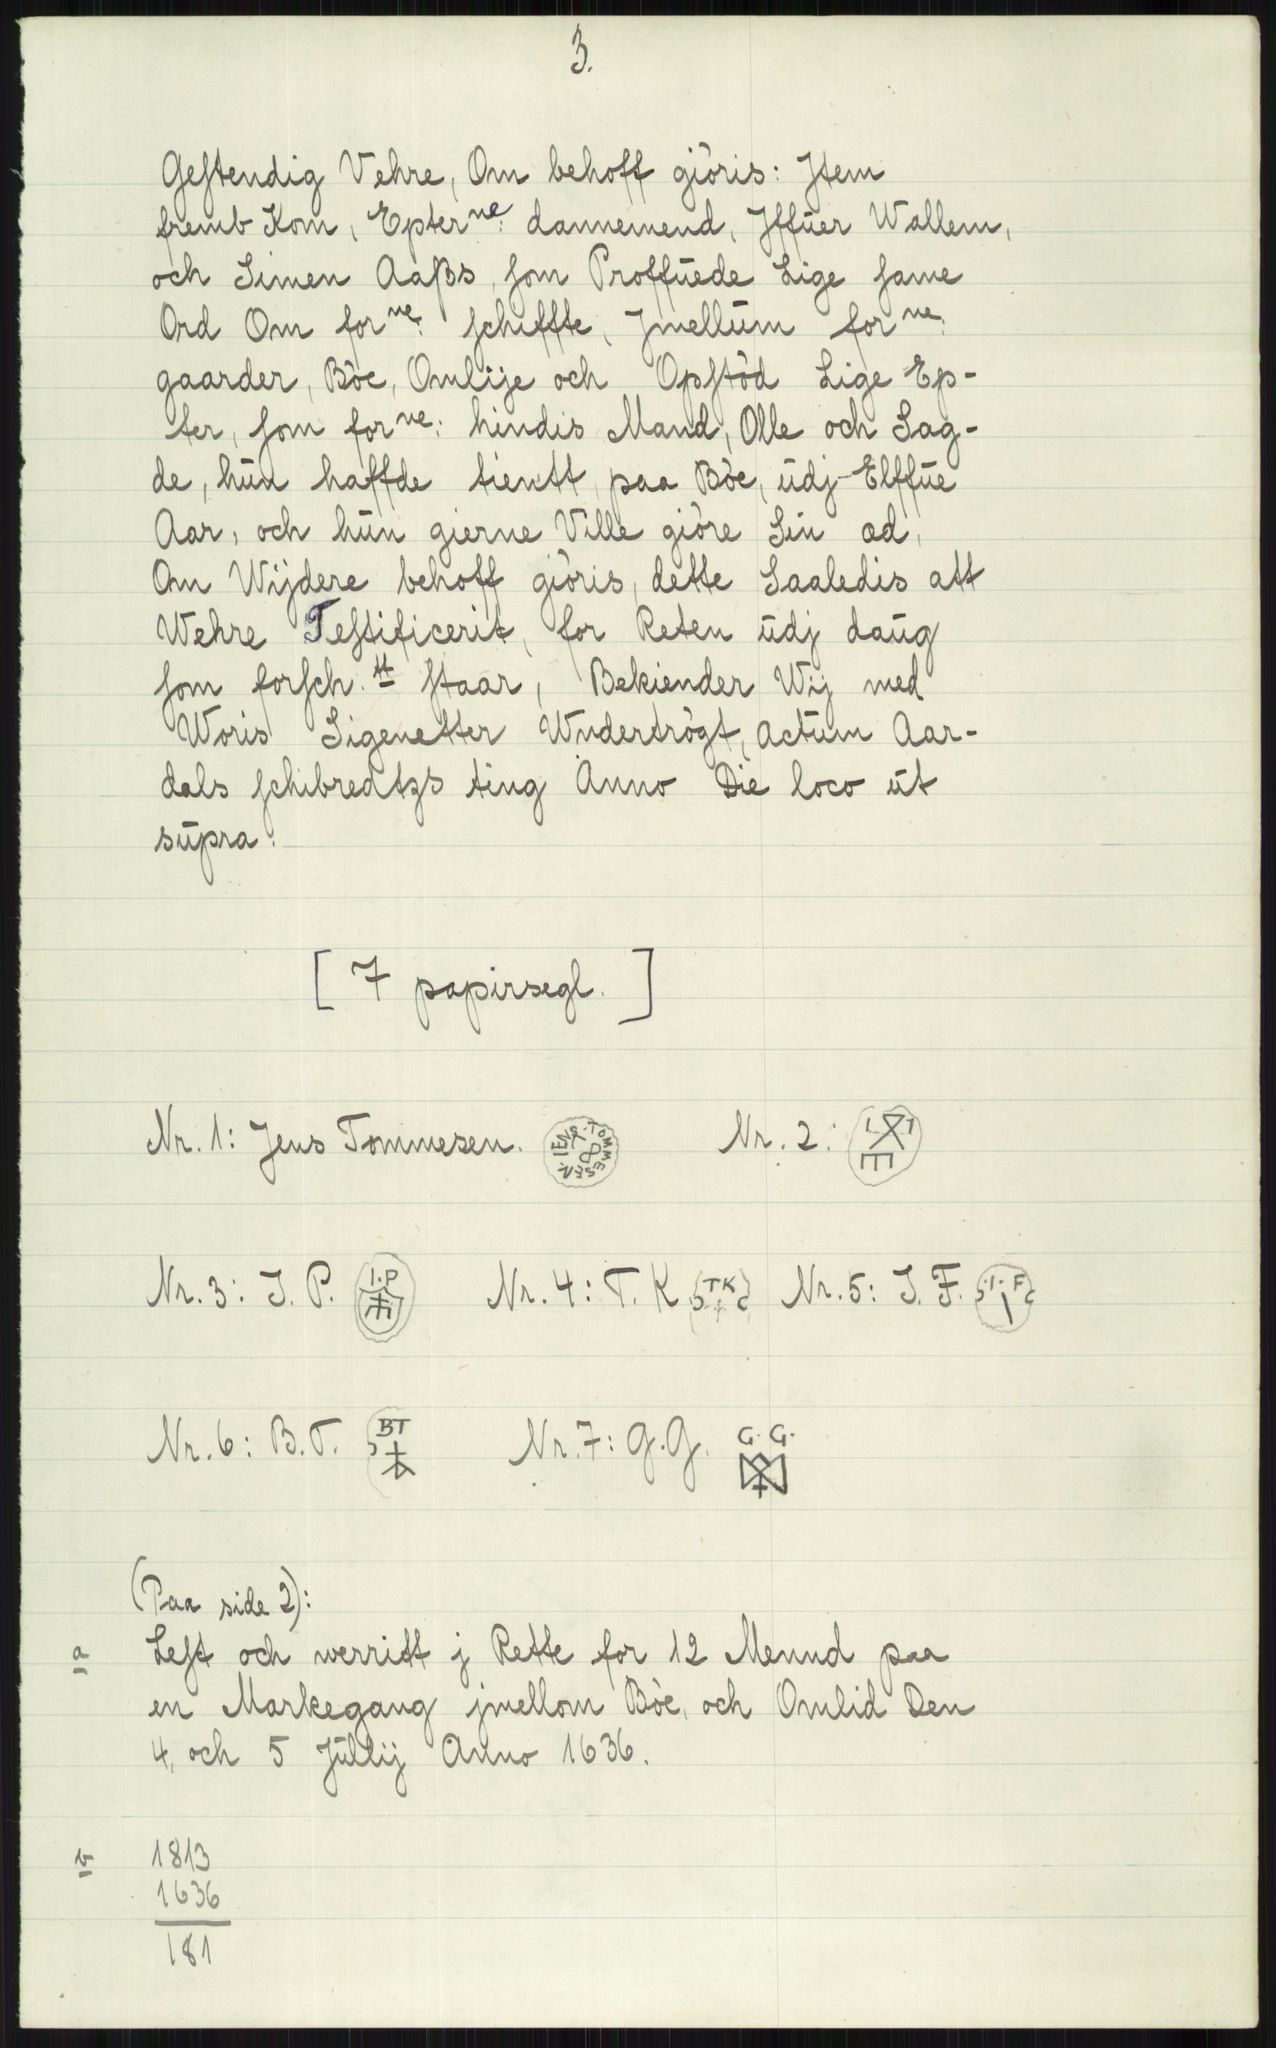 3.
Gestendig Vehre, Om behoff giöris: Jtem
fremb Kom, Epter ne: dannemend, Jffuer Wallem,
och Simen Aaßs, som Proffuede Lige same
Ord Om for ne: schiffte, Jmellum for ne:
gaarder, Böe, Omlije och Opstöd Lige Ep-
ter, som for ne: hindis Mand, Olle och Sag-
de, hun haffde tientt, paa Böe, udj Elffue
Aar, och hun gierne Ville giöre Sin æd,
Om Wijdere behoff giöris, dette Saaledis att
Wehre Testificerit, for Reten udj daug
som forsch. tt staar, Bekiender Wij med
Woris Sigenetter Wndertrögt, Actum Aar-
dals schibreatzs ting Anno Die loco ut
supra:
[ 7 papirsegl. ]
Nr. 1: Jens Tommesen. IENS TOMMESEN Nr. 2: I. T
Nr. 3: J. P. I.P Nr. 4: T. K TK Nr. 5: J. F. I. F
Nr. 6: B.T. BT Nr. 7: G.G. G. G.
(Paa side 2):
a Lest och werritt j Rette for 12 Mennd paa
en Markegang jmellom Böe, och Omlid Den
4, och 5 Jullij Anno 1636.
b 1813
1636
181